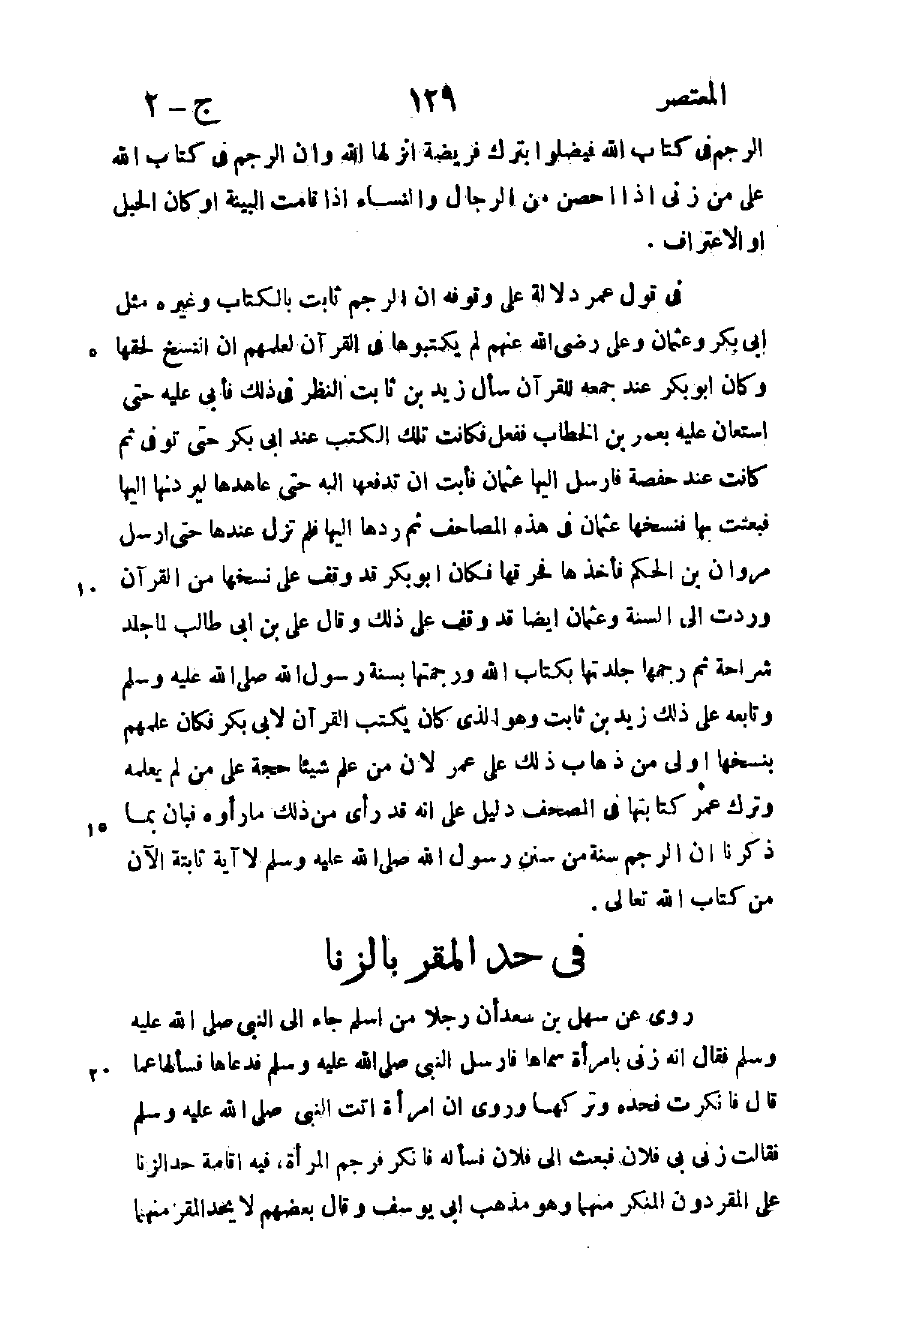 المعتصر ١٢٩ ج - ٢
الرجم فى كتاب الله فيضلوا بترك فريضة انزلها الله وان الرجم فى كتاب الله
على من زنى اذا احصن من الرجال والنساء اذا قامت البينة او كان الحبل
او الاعتراف .
فى قول عمر دلالة على وقوفه ان الرجم ثابت بالكتاب وغيره مثل
ابى بكر وعثمان وعلى رضى الله عنهم لم يكتبوها فى القرآن لعلمهم ان النسخ لحقها ٥
وكان ابو بكر عند جمعه للقرآن سأل زيد بن ثابت النظر فى ذلك فأبى عليه حتى
استعان عليه بعمر بن الخطاب ففعل فكانت تلك الكتب عند ابى بكر حتى توفى ثم
كانت عند حفصة فارسل اليها عثمان فأبت ان تدفعها اليه حتى عاهدها ليردنها اليها
فبعثت بها فنسخها عثمان فى هذه المصاحف ثم ردها اليها فلم تزل عندها حتى ارسل
مروان بن الحكم فأخذها فحرقها فكان ابو بكر قد وقف على نسخها من القرآن ١٠
وردت الى السنة وعثمان ايضا قد وقف على ذلك وقال على بن ابى طالب لما جلد
شراحة ثم رجمها جلدتها بكتاب الله ورجمتها بسنة رسول الله صلى الله عليه وسلم
وتابعه على ذلك زيد بن ثابت وهو الذى كان يكتب القرآن لابى بكر فكان علمهم
بنسخها اولى من ذهاب ذلك على عمر لان من علم شيئا حجة على من لم يعلمه
وترك عمر كتابتها فى المصحف دليل على انه قد رأى من ذلك ما رأوه فبان بما ١٥
ذكرنا ان الرجم سنة من سنن رسول الله صلى الله عليه وسلم لا آية ثابتة الآن
من كتاب الله تعالى .
فى حد المقر بالزنا
روى عن سهل بن سعد أن رجلا من اسلم جاء الى النبى صلى الله عليه
وسلم فقال انه زنى بامرأة سماها فارسل النبى صلى الله عليه وسلم فدعاها فسألها عما ٢٠
قال فانكرت فحده وتركها وروى ان امرأة اتت النبى صلى الله عليه وسلم
فقالت زنى بى فلان فبعث الى فلان فسأله فانكر فرجم المرأة، فيه اقامة حد الزنا
على المقر دون المنكر منهما وهو مذهب ابى يوسف وقال بعضهم لا يحد المقر منهما